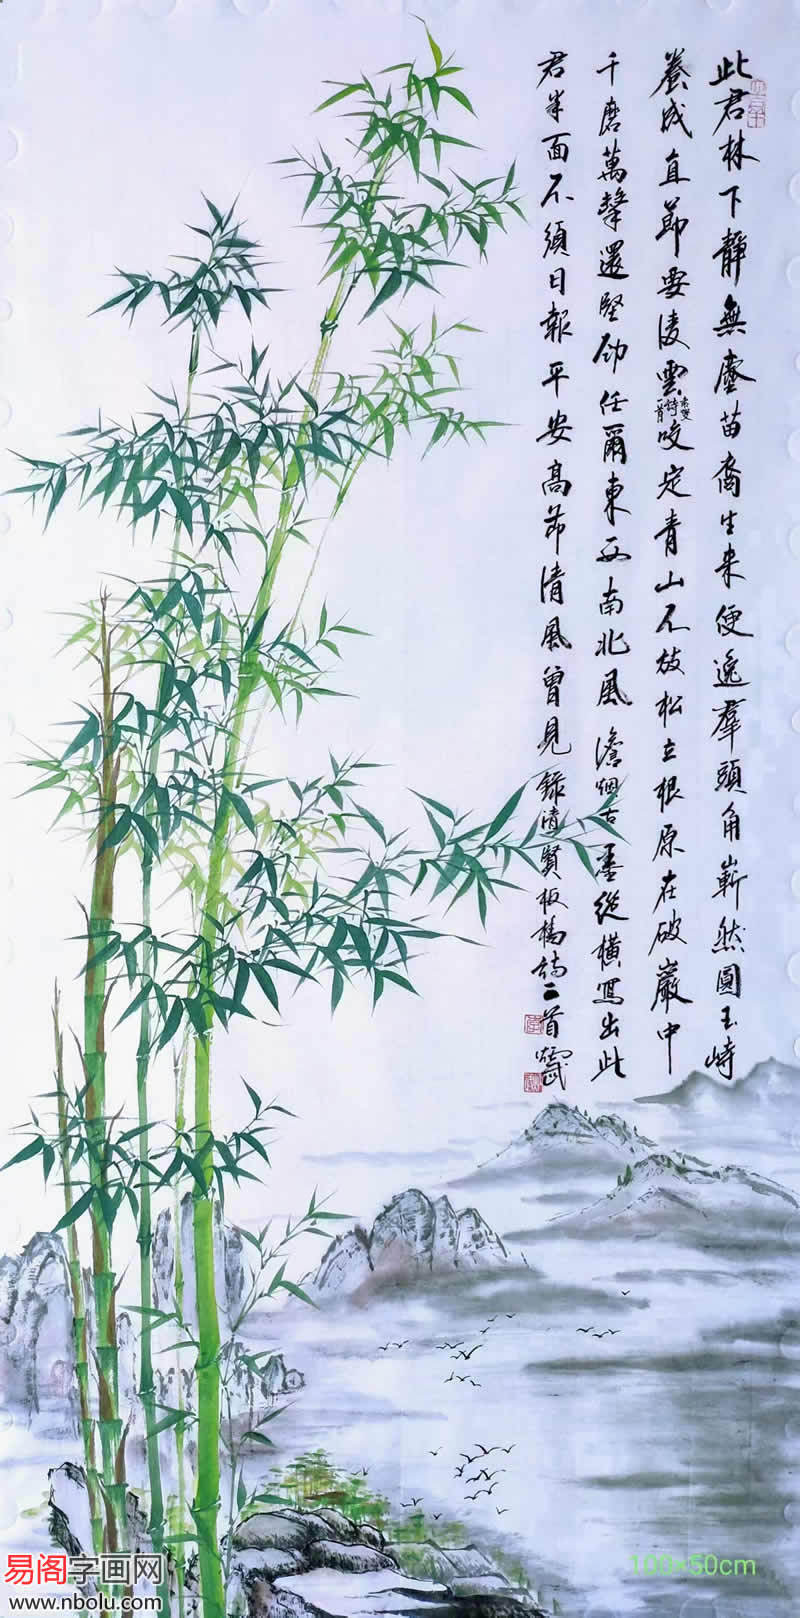 此君林下靜無塵苗裔生来便逸羣頭角嶄然圓玉峙
養成直節要凌雲咬定青山不放松立根原在破巖中
千磨萬擊還堅劲任爾東西南北風澹烟古墨縱橫寫出此
君半面不須日報平安高节清風曾見錄清賢板橋詩二首
易阁字画网
www.nbolu.com
100×50cm